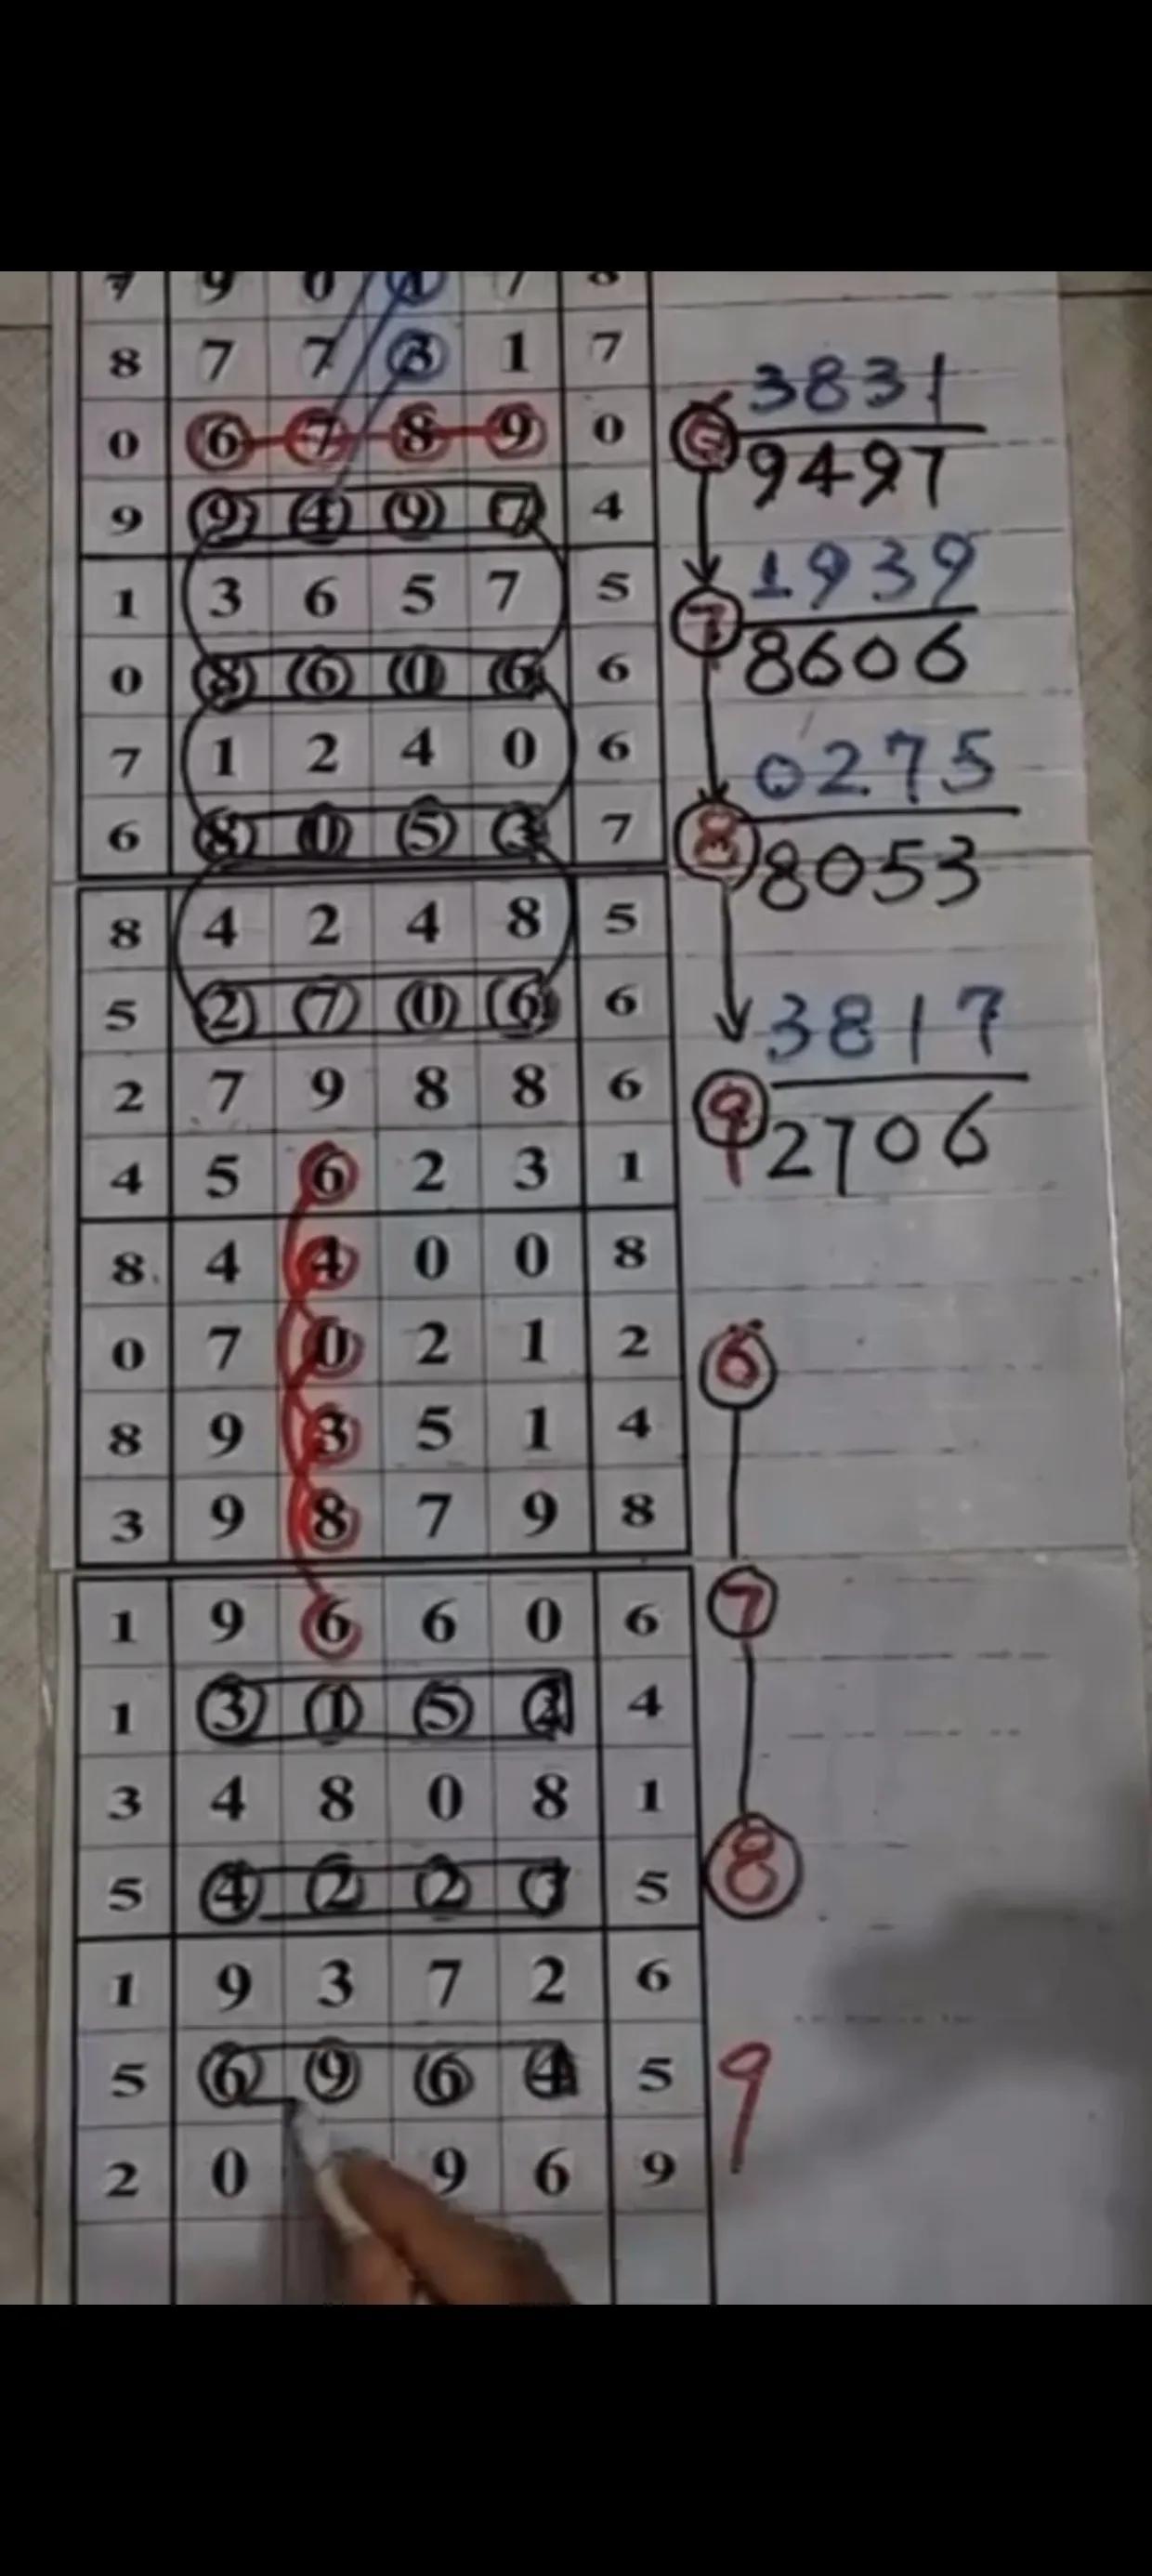 7 9 0 1 7 8
8 7 7 3 1 7
0 6 7 8 9 0
3831
9 9 4 9 7 4
9497
1 3 6 5 7 5
1939
7
0 8 6 0 6 6
8606
7 1 2 4 0 6
0275
6 8 0 5 3 7
8 8053
8 4 2 4 8 5
5 2 7 0 6 6
3817
2 7 9 8 8 6
9 2706
4 5 6 2 3 1
8 4 4 0 0 8
0 7 0 2 1 2
6
8 9 3 5 1 4
3 9 8 7 9 8
1 9 6 6 0 6
7
1 3 1 5 4
3 4 8 0 8 1
5 4 2 2 5
8
1 9 3 7 2 6
5 6 9 6 4 5
9
2 0 9 6 9